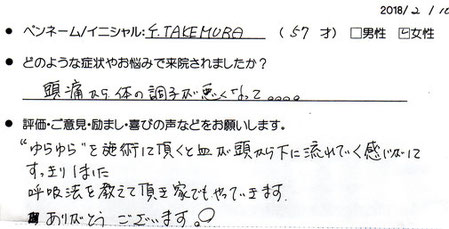 2018/2/10
● ペンネーム/イニシャル:Y.TAKEMURA (57才) □男性 ☑女性
● どのような症状やお悩みで来院されましたか?
頭痛から、体の調子が悪くなって。。。。
● 評価・ご意見・励まし・喜びの声などをお願いします。
"ゆらゆら"と施術して頂くと血が頭から下に流れていく感じがして
すっきりしました
呼吸法を教えて頂き家でもやっていきます。
ありがとうございます。